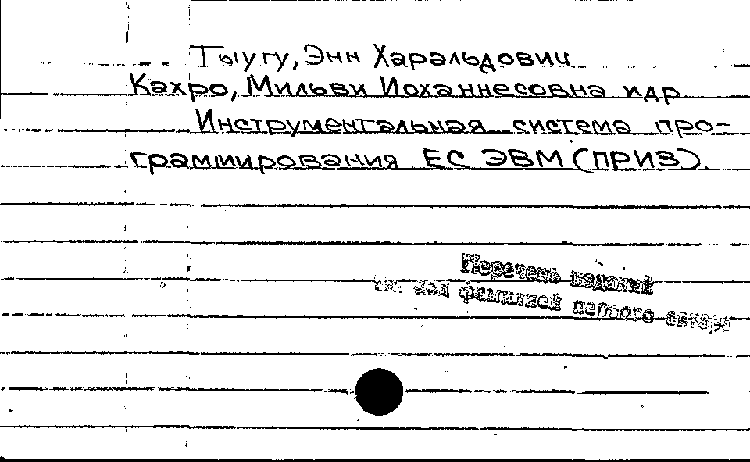 Тыугу, Энн Харальдович
Кахро, Мильви Иоханнесовна и др
Инструментальная система про-
граммирования ЕС ЭВМ (ПРИЗ).
Перечень изданий
под фамилией первого автора